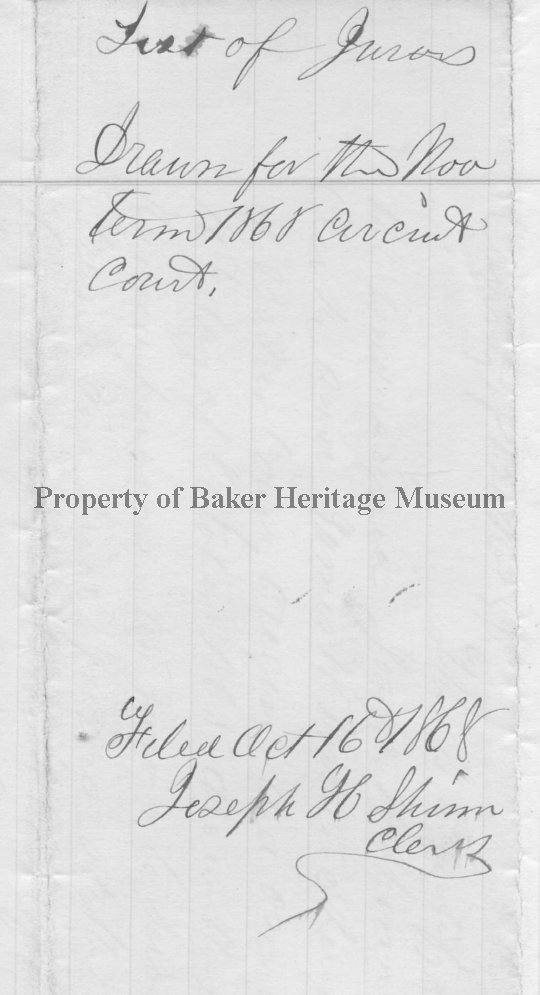 List of Jurors
Drawn for the Nov
Term 1868 Circuit
Court,
Property of Baker Heritage Museum
Filed Oct 16th 1868
Joseph H Shinn
Clerk